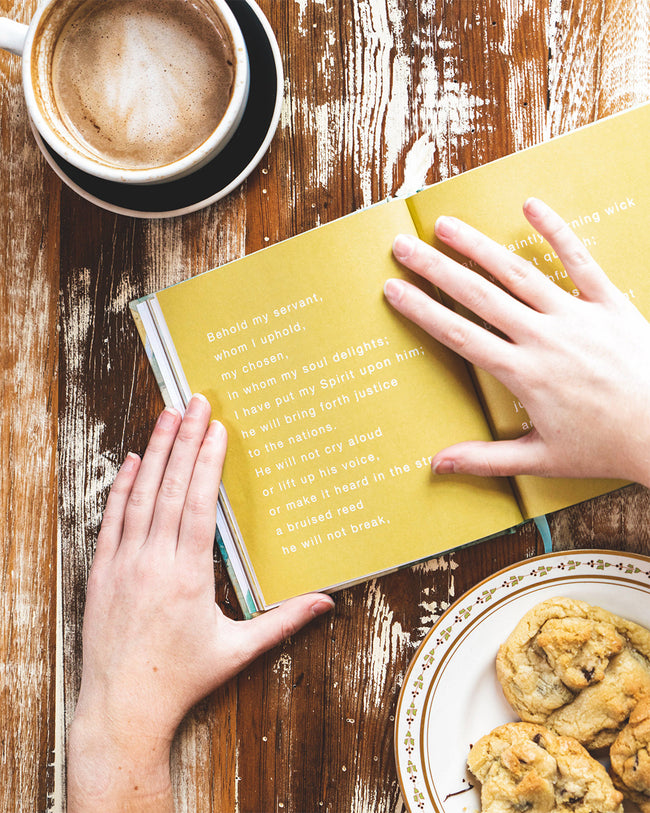 Behold my servant,
whom I uphold,
my chosen,
in whom my soul delights;
I have put my Spirit upon him;
he will bring forth justice
to the nations.
He will not cry aloud
or lift up his voice,
or make it heard in the
a bruised reed
he will not break,
wick